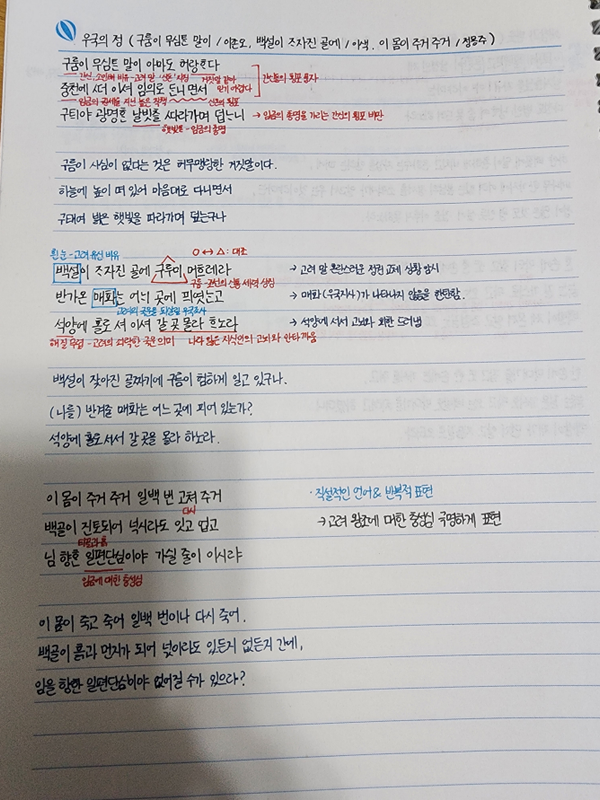 우국의 정 (구름이 무심튼 말이 / 이존오, 백설이 ᄌᆞ자진 골에 / 이색, 이 몸이 주거 주거 / 정몽주)
구름이 무심튼 말이 아마도 허랑ᄒᆞ다
간신, 소인배 비유 - 고려 말 신돈 지칭 거짓말 같아
간신들의 횡포 풍자
중천에 ᄯᅥ 이셔 임의로 ᄃᆞ니면서
임금의 권세를 지닌 높은 직책 신돈의 횡포
구ᄐᆞ야 광명ᄒᆞᆫ 날빗츨 ᄯᅡ라가며 덥ᄂᆞ니 → 임금의 총명을 가리는 간신의 횡포 비판
햇빛을 - 임금의 총명
구름이 사심이 없다는 것은 허무맹랑한 거짓말이다.
하늘에 높이 떠 있어 마음대로 다니면서
구태여 밝은 햇빛을 따라가며 덮는구나
흰 눈 - 고려 유신 비유
○ ↔ △ : 대조
백설이 ᄌᆞ자진 골에 구름이 머흐레라 → 고려 말 혼란스러운 정권 교체 상황 암시
구름 - 조선의 신흥 세력 상징
반가온 매화는 어ᄂᆡ 곳에 픠엿ᄂᆞᆫ고 → 매화 (우국지사)가 나타나지 않음을 한탄함.
고려의 국운을 되살릴 우국지사
석양에 홀로 셔 이셔 갈 곳 몰라 ᄒᆞ노라 → 석양에 서서 고뇌와 회한 드러냄
해 질 무렵 - 고려의 쇠약한 국운 의미 나라 잃은 지식인의 고뇌와 안타까움
백설이 잦아진 골짜기에 구름이 험하게 일고 있구나.
(나를) 반겨줄 매화는 어느 곳에 피어 있는가?
석양에 홀로 서서 갈 곳을 몰라 하노라.
이 몸이 주거 주거 일백 번 고쳐 주거 · 직설적인 언어 & 반복적 표현
다시
백골이 진토되어 넉시라도 잇고 업고 → 고려 왕조에 대한 충성심 극명하게 표현
티끌과 흙
님 향ᄒᆞᆫ 일편단심이야 가싈 줄이 이시랴
임금에 대한 충성심
이 몸이 죽고 죽어 일백 번이나 다시 죽어.
백골이 흙과 먼지가 되어 넋이라도 있든지 없든지 간에,
임을 향한 일편단심이야 없어질 수가 있으랴?